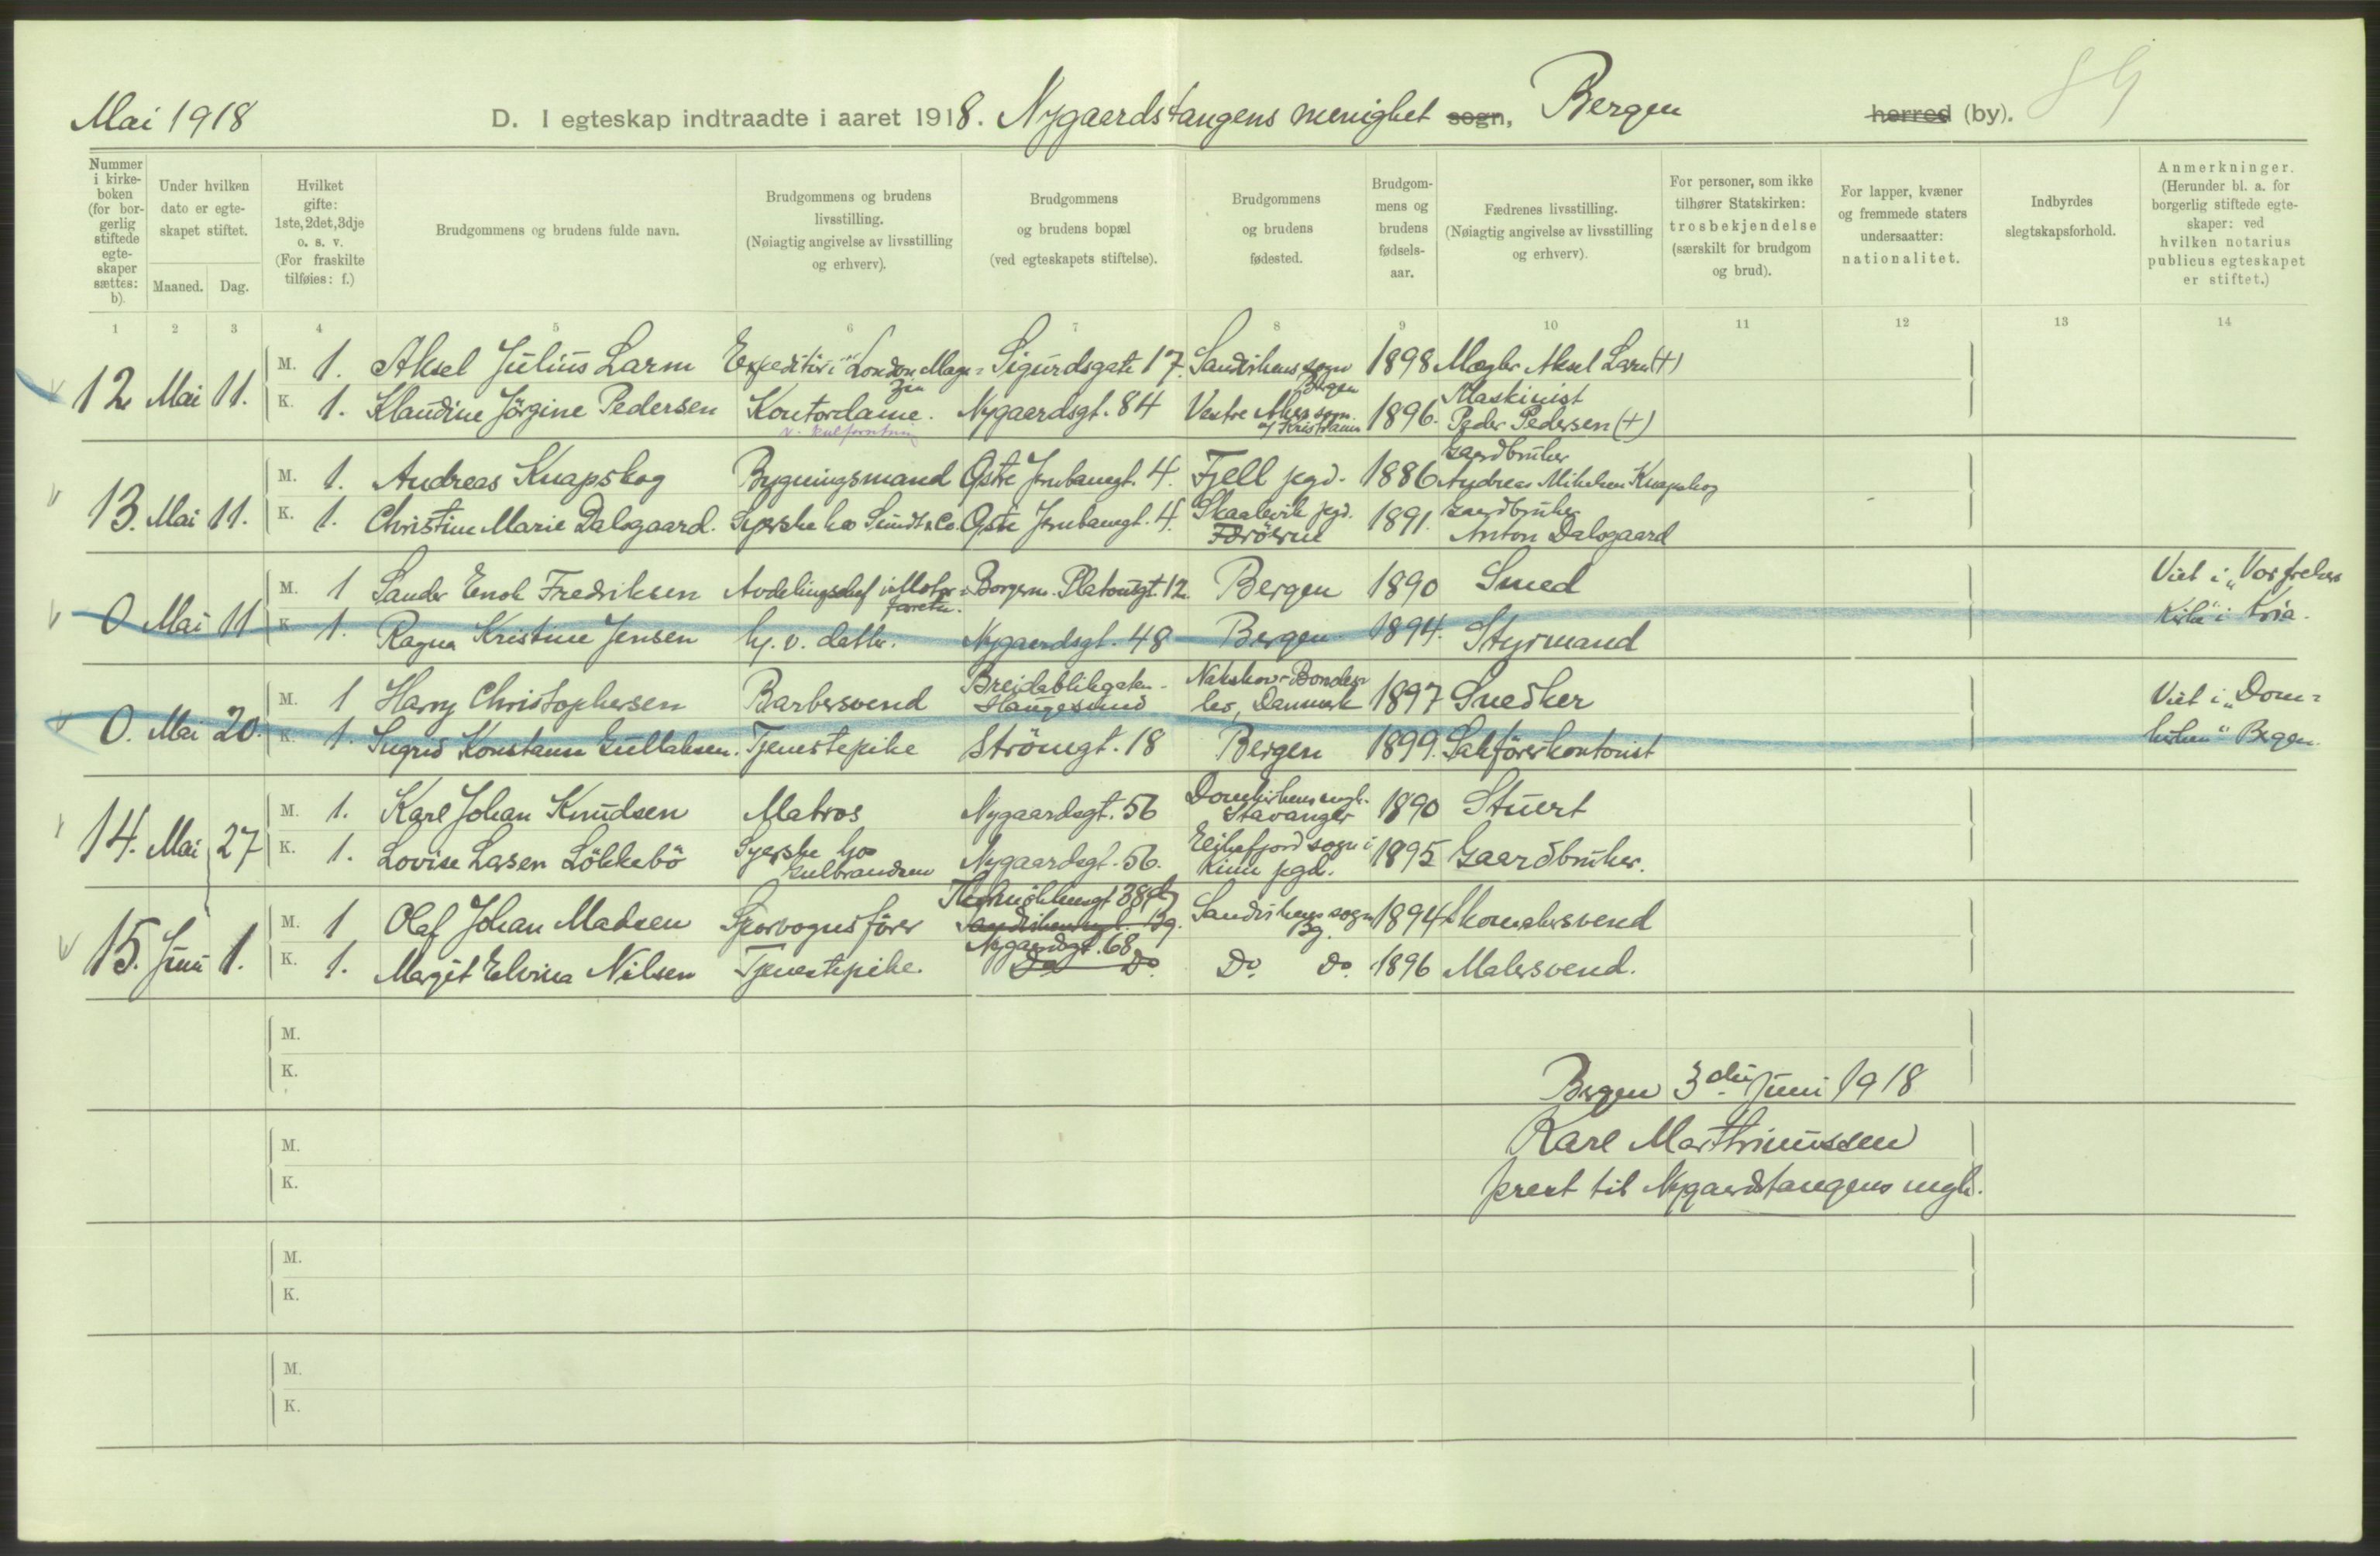 Mai 1918
D. I egteskap indtraadte i aaret 1918. Nygaardstangens menighet sogn, Bergen herred (by). 89
Nummer i kirke-boken (for bor-gerlig stiftede egte-skaper sættes: b).
Under hvilken dato er egte-skapet stiftet.
Maaned. Dag.
Hvilket gifte: 1ste, 2det, 3dje o. s. v. (For fraskilte tilføies: f.)
Brudgommens og brudens fulde navn.
Brudgommens og brudens livsstilling. (Nøiagtig angivelse av livsstilling og erhverv).
Brudgommens og brudens bopæl (ved egteskapets stiftelse).
Brudgommens og brudens fødested.
Brudgom-mens og brudens fødsels-aar.
Fædrenes livsstilling. (Nøiagtig angivelse av livsstilling og erhverv).
For personer, som ikke tilhører Statskirken: trosbekjendelse (særskilt for brudgom og brud).
For lapper, kvæner og fremmede staters undersaatter: nationalitet.
Indbyrdes slegtskapsforhold.
Anmerkninger. (Herunder bl. a. for borgerlig stiftede egte-skaper: ved hvilken notarius publicus egteskapet er stiftet.)
1 2 3 4 5 6 7 8 9 10 11 12 13 14
12 Mai 11. M. 1. Aksel Julius Larm Expeditør i "London Maga=zin Sigurdsgate 17. Sandvikens sogn Bergen 1898 Mægler Aksel Larm (+)
K. 1. Klaudine Jörgine Pedersen Kontordame. Nygaardsgt. 84 Vestre Aker sogn. v/ Kristiania 1896. Maskinist Peder Pedersen (+)
13. Mai 11. M. 1. Andreas Knapskog Bygningsmand Østre Jernbanegt. 4. Fjell pgd. 1886 Gaardbruker Andreas Mikelsen Knapskog
K. 1. Christine Marie Dalsgaard. Syerske hos Sundt & Co. Østre Jernbanegt. 4. Skaalevik pgd. Færöerne 1891. Gaardbruker Anton Dalsgaard
0 Mai 11 M. 1 Sander Enok Fredriksen Avdelingschef i Motor=forretn. Borgerm. Platougt. 12. Bergen 1890 Smed Viet i "Vor frelsers
K. 1. Ragna Kristine Jensen hj. v. datter. Nygaardsgt. 48 Bergen 1894. Styrmand Kirke" i Kria.
0. Mai 20. M. 1 Harry Christophersen Barbersvend Breidablikgaten - Haugesund Nakskov - Danmark 1897 Snedker Viet i "Dom=
K. 1. Sigrid Konstanse Gullaksen. Tjenestepike Strömgt. 18 Bergen 1899. Sakförerkontorist kirken" Bergen.
14. Mai 27 M. 1. Karl Johan Knudsen Matros Nygaardsgt. 56 Domkirkens mgh. Stavanger 1890 Stuert
K. 1. Lovise Lasen Lökkebö Syerske hos Gulbrandsen Nygaardsgt. 56. Eikefjord sogn i Kinn pgd. 1895 Gaardbruker.
15. Juni 1. M. 1 Olaf Johan Madsen Sporvognsförer Sandvikens sogn Bg. 1894 Skomakersvend
K. 1. Margit Elvina Nilsen Tjenestepike. Nygaardsgt. 68 Do Do. Do. Do. 1896 Malersvend.
M.
K.
Bergen 3die Juni 1918
M.
Karl Marthinussen
K.
prest til Nygaardstangens mgh.
M.
K.
M.
K.